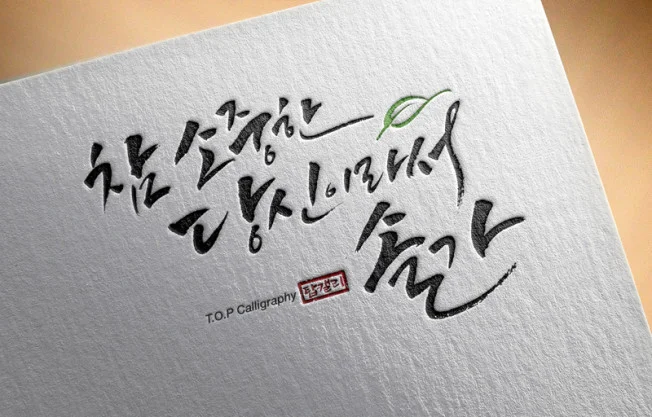 참 소중한
당신이라서
출간
T.O.P Calligraphy 탑캘리